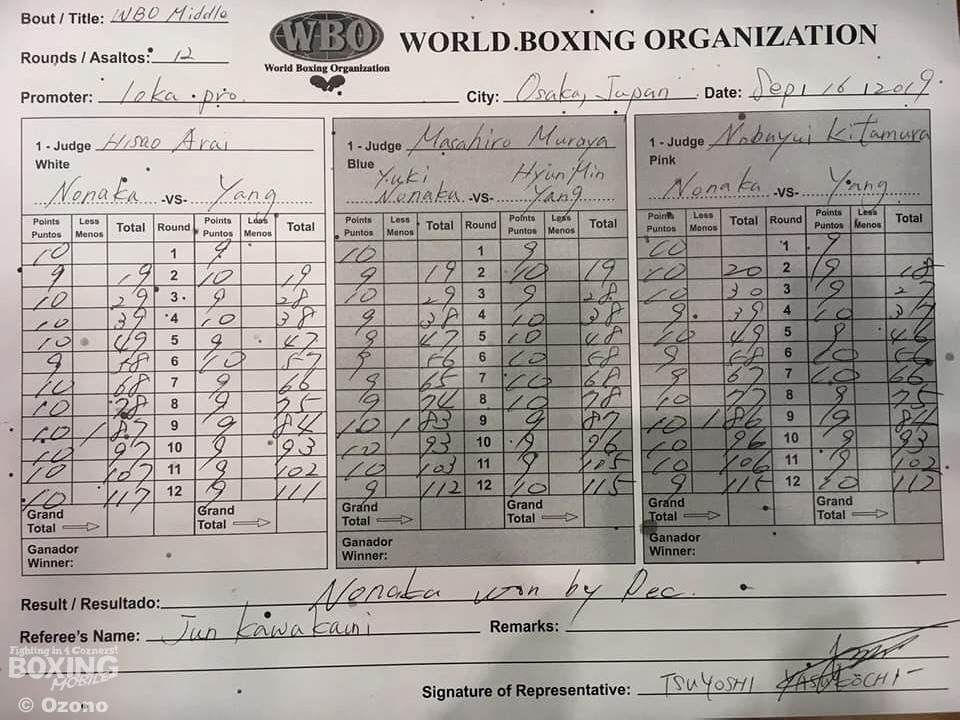 Bout / Title: WBO Middle
WBO
World Boxing Organization
WORLD BOXING ORGANIZATION
Rounds / Asaltos: 12
Promoter: Ioka pro. City: Osaka, Japan Date: Sep / 16 / 2019
1 - Judge Hisao Arai
White
Nonaka -VS- Yang
Points Puntos Less Menos Total Round Points Puntos Less Menos Total
10 1 9
9 19 2 10 19
10 29 3 9 28
10 39 4 10 38
10 49 5 9 47
9 58 6 10 57
10 68 7 9 66
10 78 8 9 75
10 1 87 9 9 84
10 97 10 9 93
10 107 11 9 102
10 117 12 9 111
Grand Total Grand Total
Ganador
Winner:
1 - Judge Masahiro Muroya
Blue
Yuki Nonaka -VS- HyunMin Yang
Points Puntos Less Menos Total Round Points Puntos Less Menos Total
10 1 9
9 19 2 10 19
10 29 3 9 28
9 38 4 10 38
9 47 5 10 48
9 56 6 10 58
9 65 7 10 68
9 74 8 10 78
10 1 83 9 9 87
10 93 10 9 96
10 103 11 9 105
9 112 12 10 115
Grand Total Grand Total
Ganador
Winner:
1 - Judge Nobuyui Kitamura
Pink
Nonaka -VS- Yang
Points Puntos Less Menos Total Round Points Puntos Less Menos Total
10 1 9
10 20 2 9 18
10 30 3 9 27
9 39 4 10 37
10 49 5 9 46
9 58 6 10 56
9 67 7 10 66
10 77 8 9 75
10 1 86 9 9 84
10 96 10 9 93
10 106 11 9 102
9 115 12 10 112
Grand Total Grand Total
Ganador
Winner:
Result / Resultado: Nonaka won by Dec.
Referee's Name: Jun Kawakami Remarks:
Signature of Representative: TSUYOSHI YASUKOCHI
Fighting in 4 Corners!
BOXING
MOBILE
© Ozono